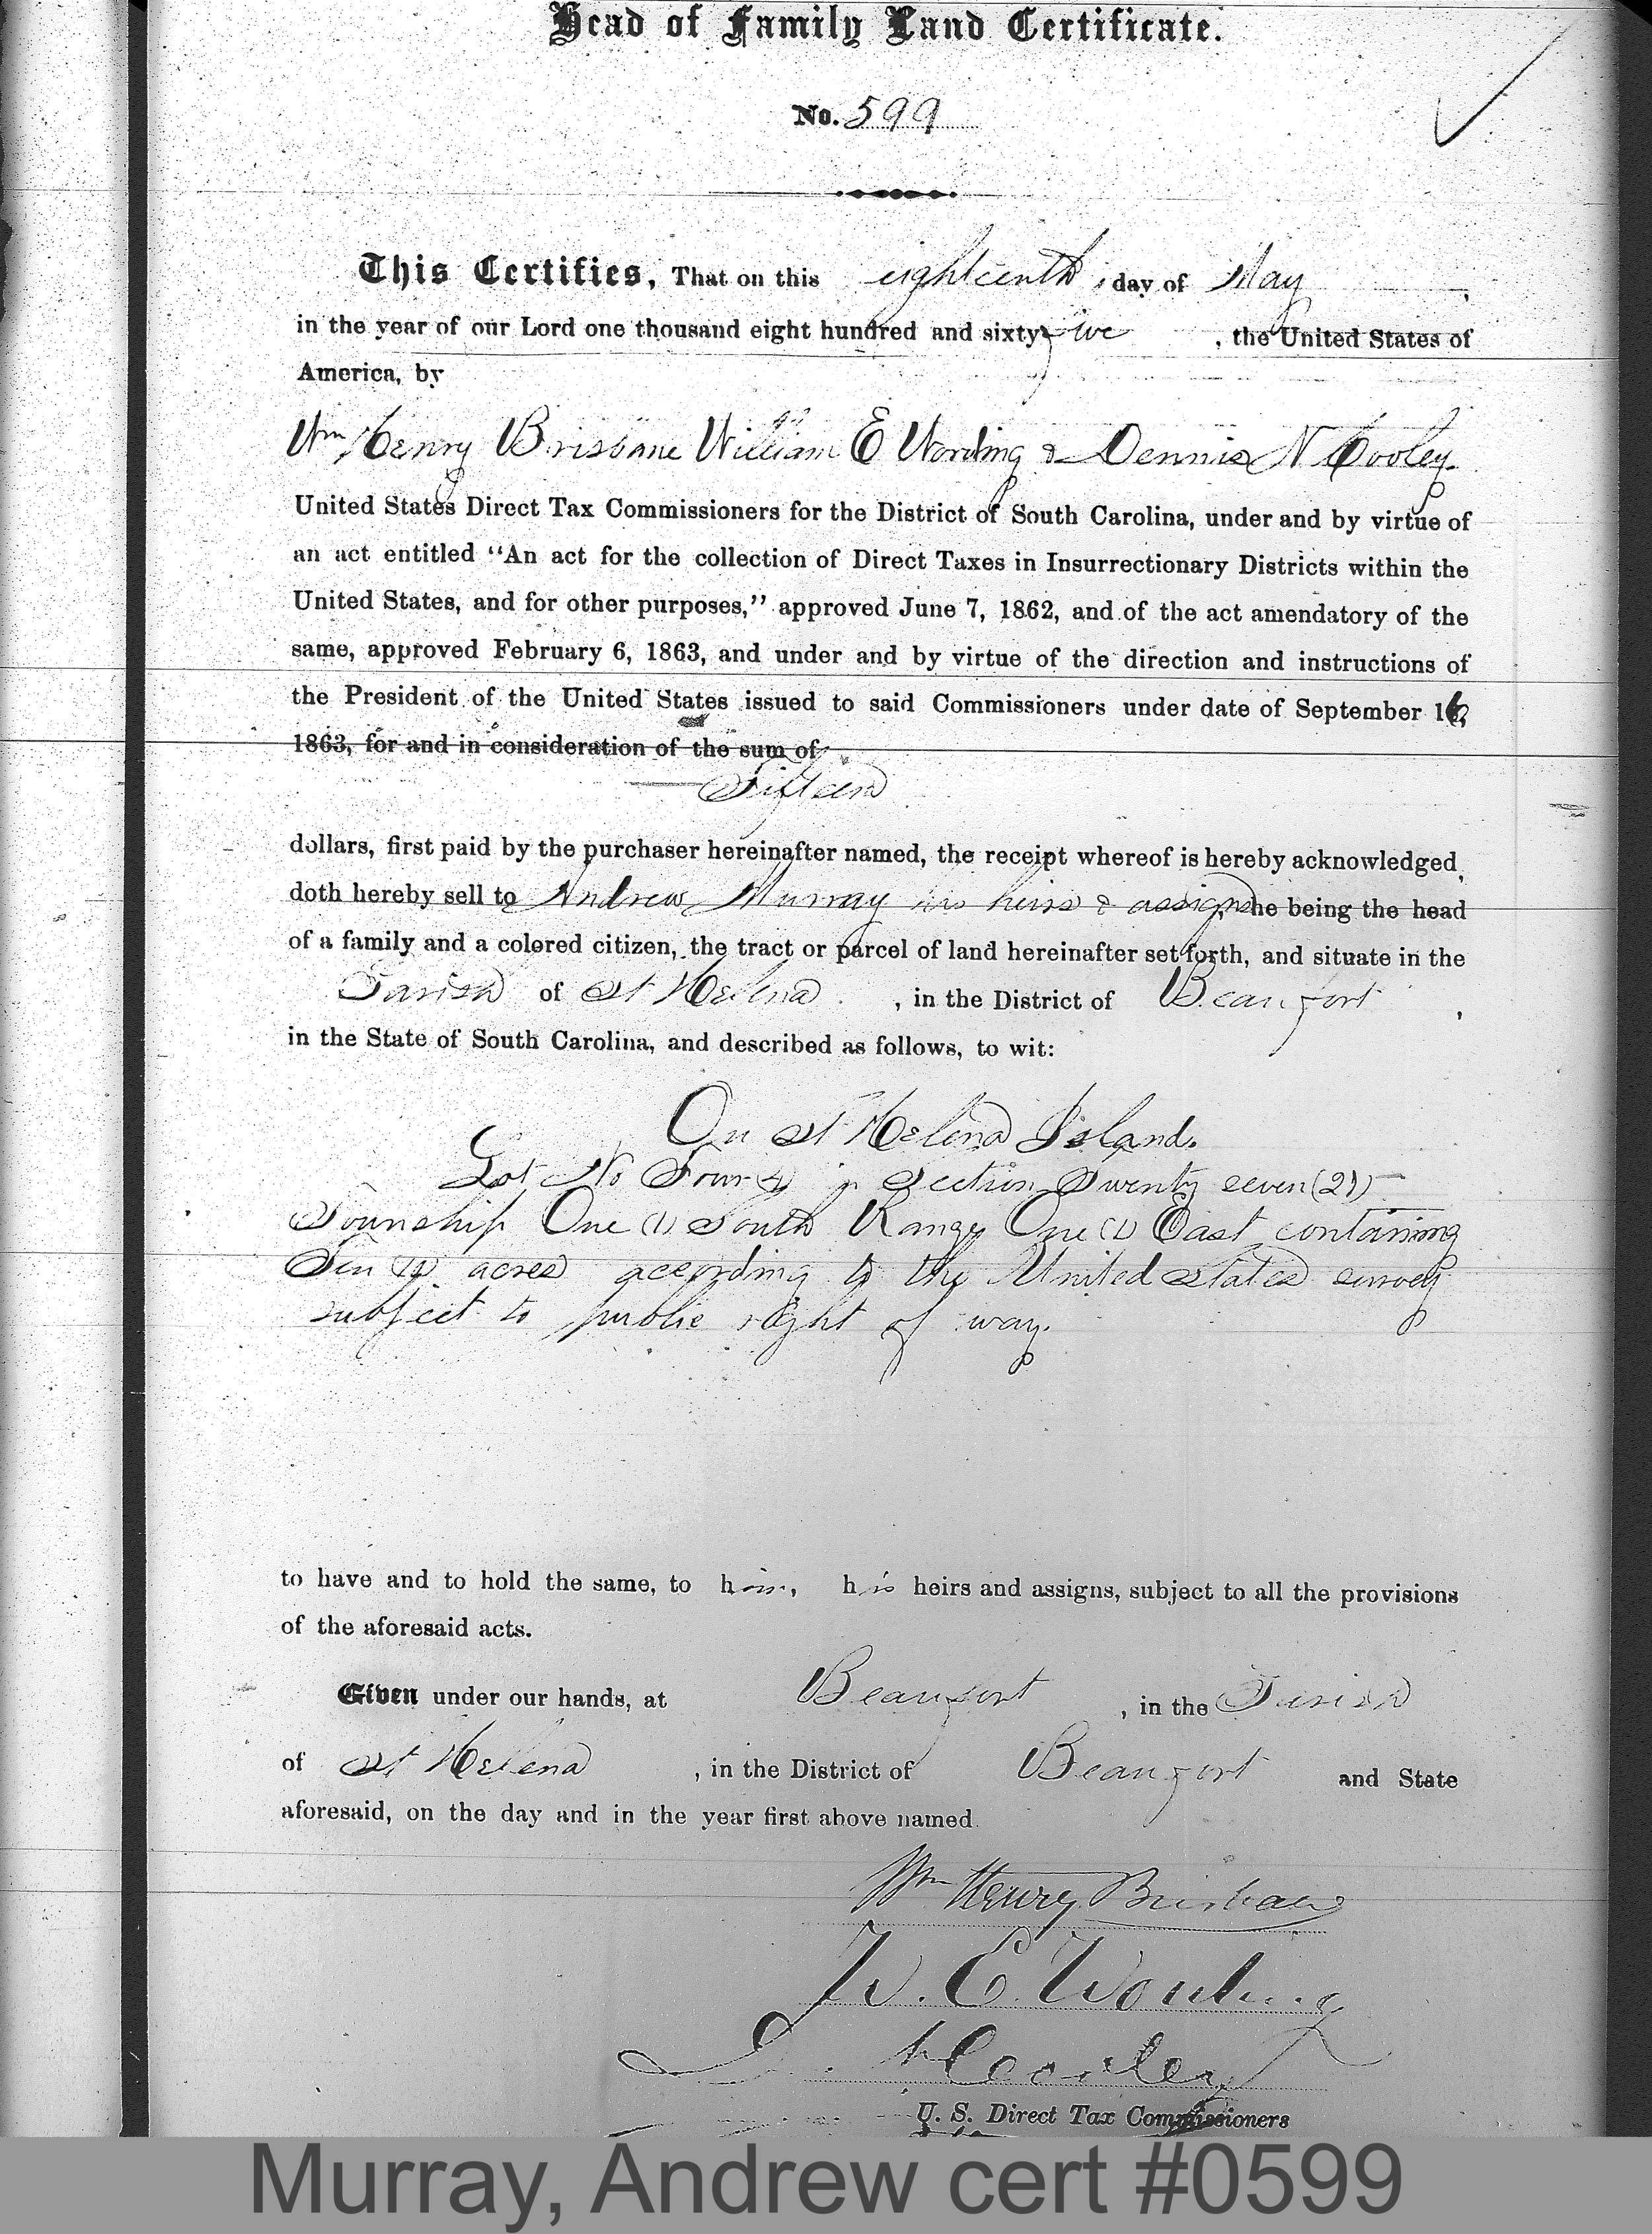 Head of Family Land Certificate.
No. 599
This Certifies, That on this eighteenth, day of May,
in the year of our Lord one thousand eight hundred and sixty five, the United States of
America, by
Wm Henry Brisbane William E Wording & Dennis N Cooley
United States Direct Tax Commissioners for the District of South Carolina, under and by virtue of
an act entitled “An act for the collection of Direct Taxes in Insurrectionary Districts within the
United States, and for other purposes,” approved June 7, 1862, and of the act amendatory of the
same, approved February 6, 1863, and under and by virtue of the direction and instructions of
the President of the United States issued to said Commissioners under date of September 16,
1863, for and in consideration of the sum of
Fifteen
dollars, first paid by the purchaser hereinafter named, the receipt whereof is hereby acknowledged,
doth hereby sell to Andrew Murray his heirs & assigns, he being the head
of a family and a colored citizen, the tract or parcel of land hereinafter set forth, and situate in the
Parish of St Helena, in the District of Beaufort,
in the State of South Carolina, and described as follows, to wit:
On St Helena Island.
Lot No Four (4) in Section Twenty seven (27)
Township One (1) South Range One (1) East containing
Ten (10) acres according to the United States survey
subject to public right of way.
to have and to hold the same, to him, his heirs and assigns, subject to all the provisions
of the aforesaid acts.
Given under our hands, at Beaufort, in the Parish
of St Helena, in the District of Beaufort and State
aforesaid, on the day and in the year first above named.
Wm Henry Brisbane
W. E. Wording
D. N. Cooley
U. S. Direct Tax Commissioners
Murray, Andrew cert #0599